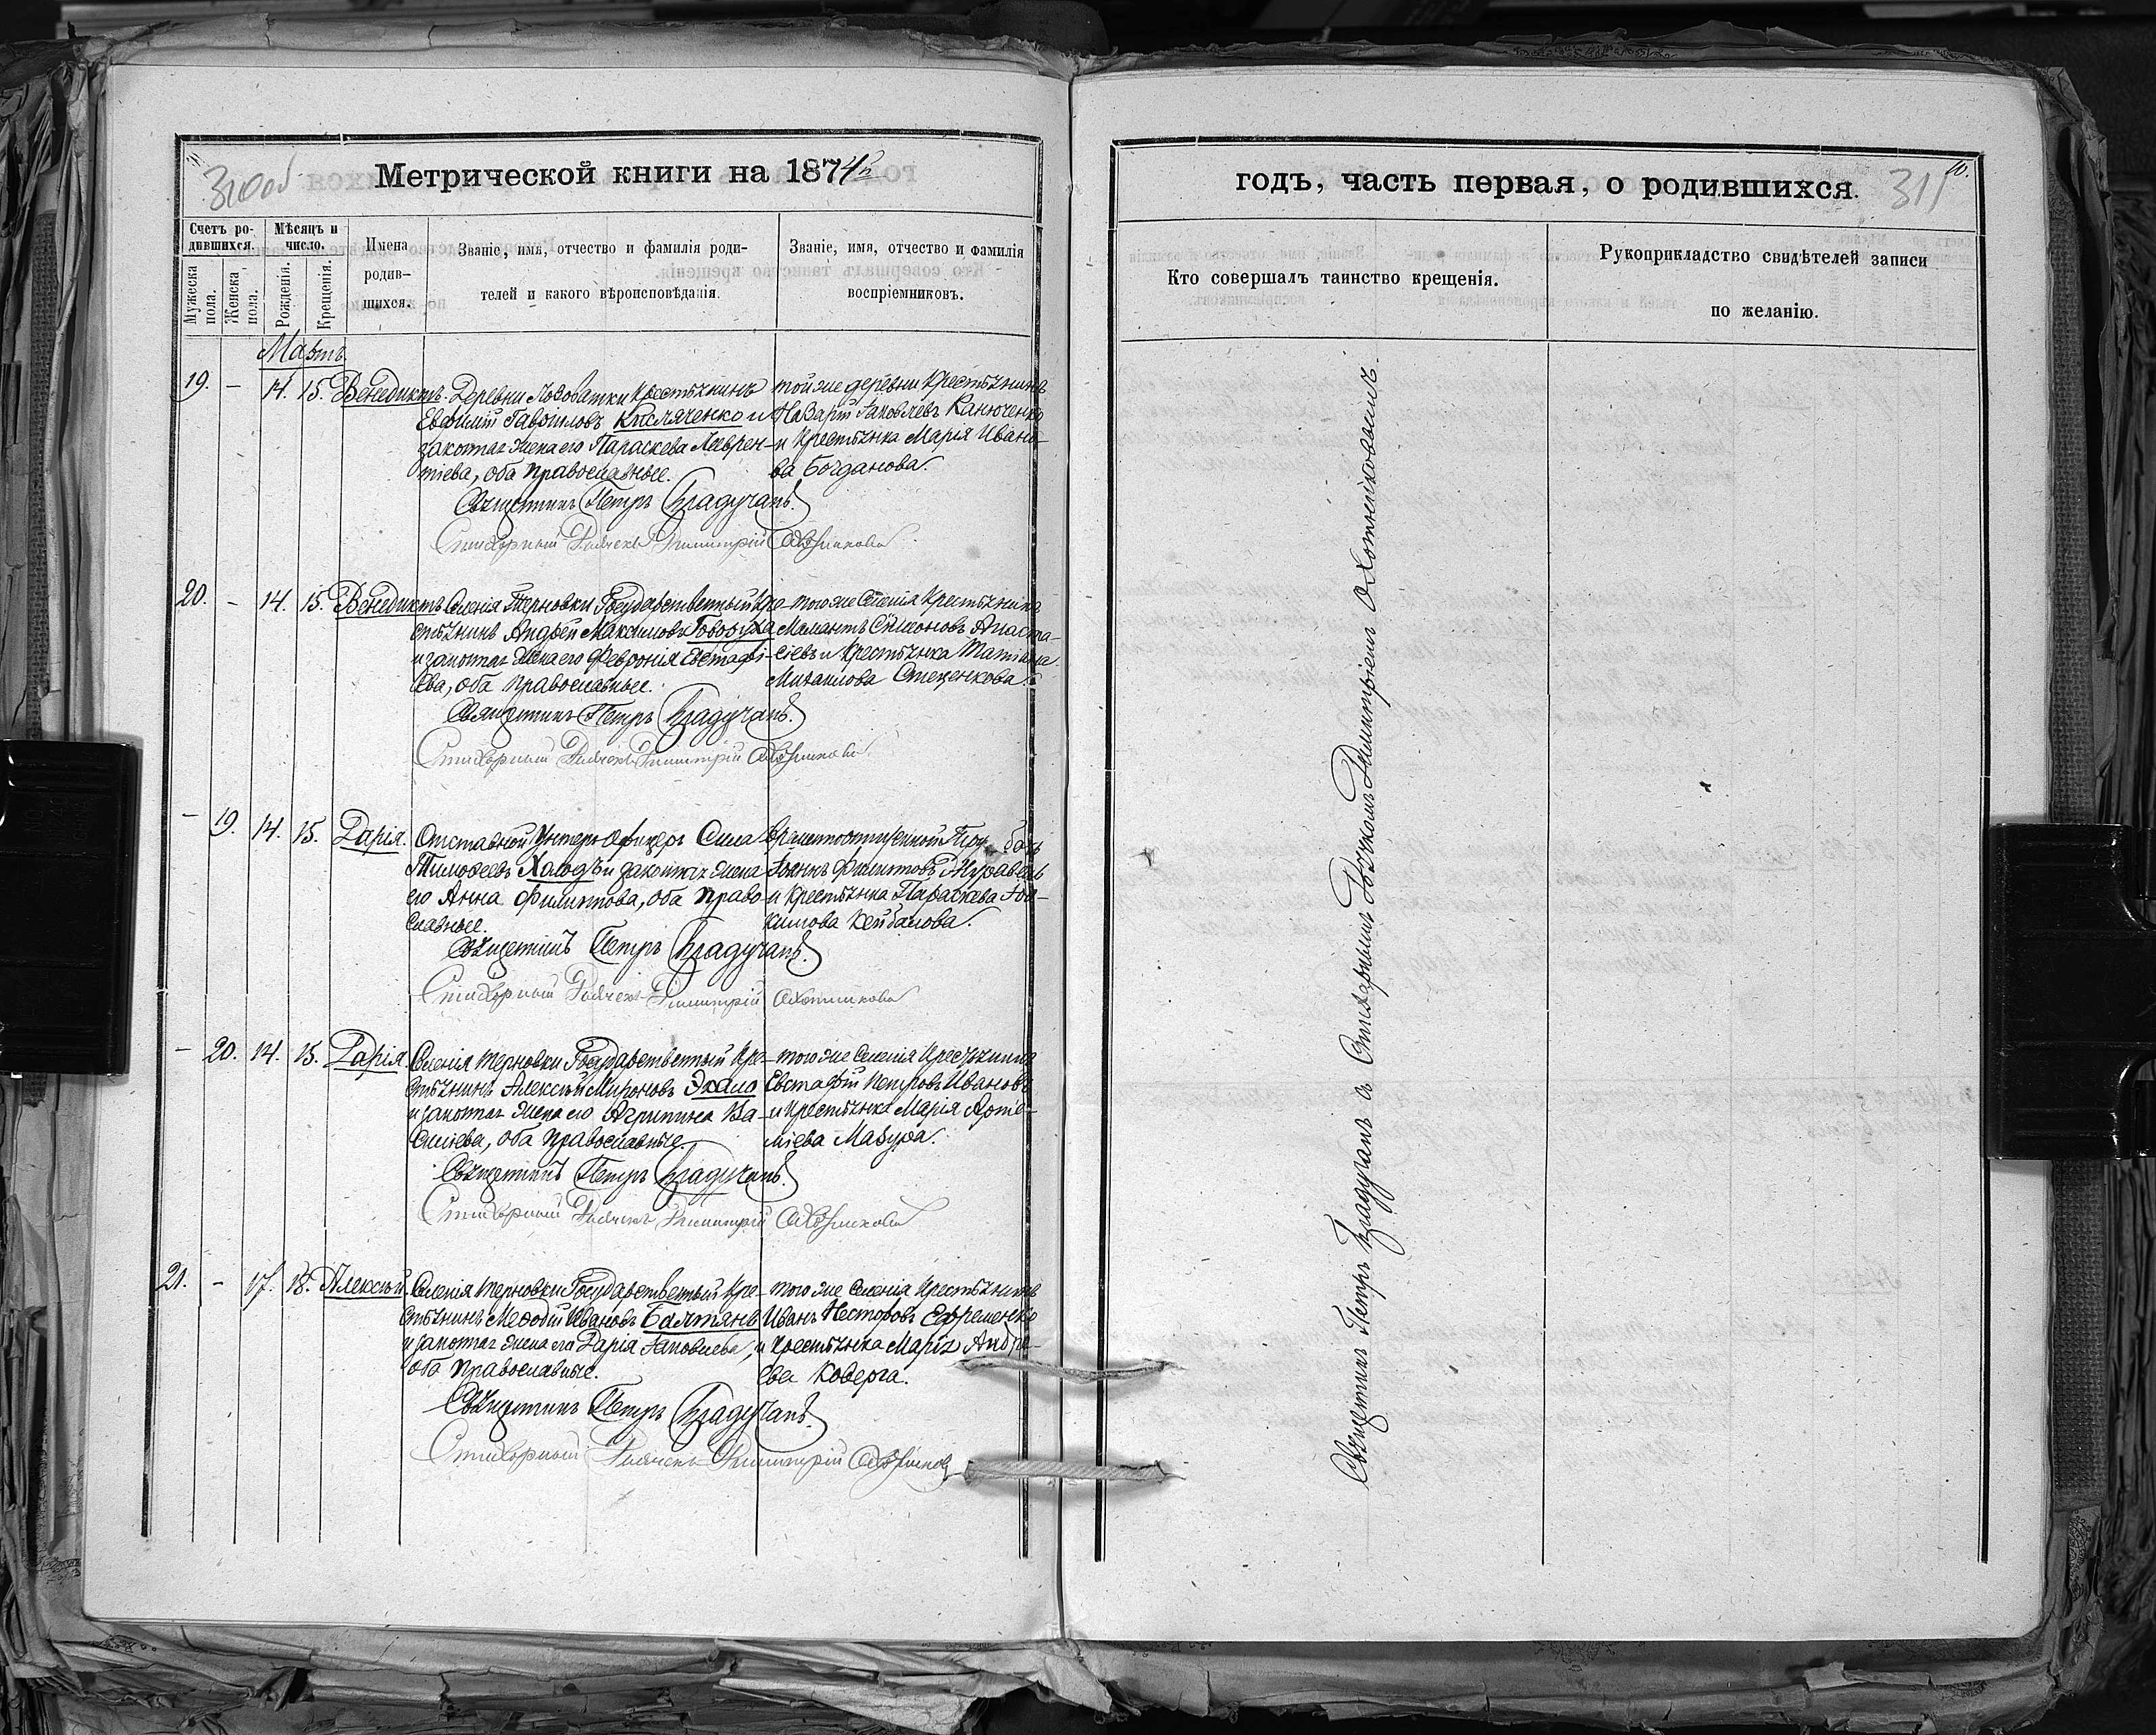 310 об
Метрической книги на 1874й
Счетъ ро-
дившихся.
Мѣсяцъ и
число.
Мужеска
пола.
Женска
пола.
Рожденія.
Крещенія.
Имена
родив-
шихся.
Званіе, имя, отчество и фамилія роди-
телей и какого вѣроисповѣданія.
Званіе, имя, отчество и фамилія
воспріемниковъ.
Мартъ
19. – 14. 15. Венедиктъ. Деревни Крестьянинъ
Евфимій Гавріиловъ Кисляченко и
законная жена его Параскева Лаврен-
тіева, оба православные.
той же деревни Крестьянинъ
Назарій Іаковлевъ Канюченко
и Крестьянка Марія Ивано-
ва Богданова.
Священникъ Петръ
Стихарный Дьячекъ Димитрій
20. – 14. 15. Венедиктъ Селенія Терновки Государственный Кре-
стьянинъ Андрей Максимовъ Говоруха
и законная жена его Февронія Евстафі-
ева, оба православные.
того же селенія Крестьянинъ
Мамантъ Анаста-
сіевъ и Крестьянка Татіана
Михаилова Стеценкова.
Священникъ Петръ
Стихарный Дьячекъ Димитрій
– 19. 14. 15. Дарія. Отставной Унтеръ Офицеръ Сила
Тимофеевъ Холодъ и законная жена
его Анна Филиппова, оба право-
славные.
Іоаннъ Филипповъ Журавель
и Крестьянка Параскева Іоа-
кимова
Священникъ Петръ
Стихарный Дьячекъ Димитрій
– 20. 14. 15. Дарія. Селенія Терновки Государственный Кре-
стьянинъ Алексѣй Мироновъ
и законная жена его Агрипина Ва-
силіева, оба православные.
того же селенія Крестьянинъ
Евстафій Петровъ Ивановъ
и Крестьянка Марія Артe-
міева Мазура.
Священникъ Петръ
Стихарный Дьячекъ Димитрій
21. – 17. 18. Алексѣй. Селенія Терновки Государственный Кре-
стьянинъ Меѳодій Ивановъ Балтянъ
и законная жена его Дарія Іаковлева,
оба православные.
того же селенія Крестьянинъ
Иванъ Несторовъ Ефременко
и Крестьянка Марія Андре-
ева Коверга.
Священникъ Петръ
Стихарный Дьячекъ Димитрій
годъ, часть первая, о родившихся.
311
10.
Кто совершалъ таинство крещенія.
Рукоприкладство свидѣтелей записи
по желанію.
Священникъ Петръ съ Стихарнымъ Дьячкомъ Димитріемъ Охотниковымъ.